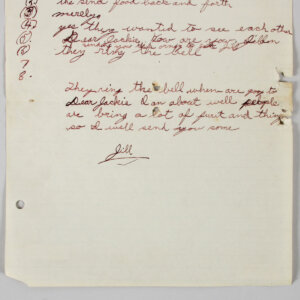 (2) to send food back and forth
(3)
(4) yes they wanted to see each other
(5) Dear Jackie, how are you
(6) they ring the bell
7
8.
They ring the bell when are you to
Dear Jackie I am about well people
we bring a lot of fruit and things
so I will send you some
Jill